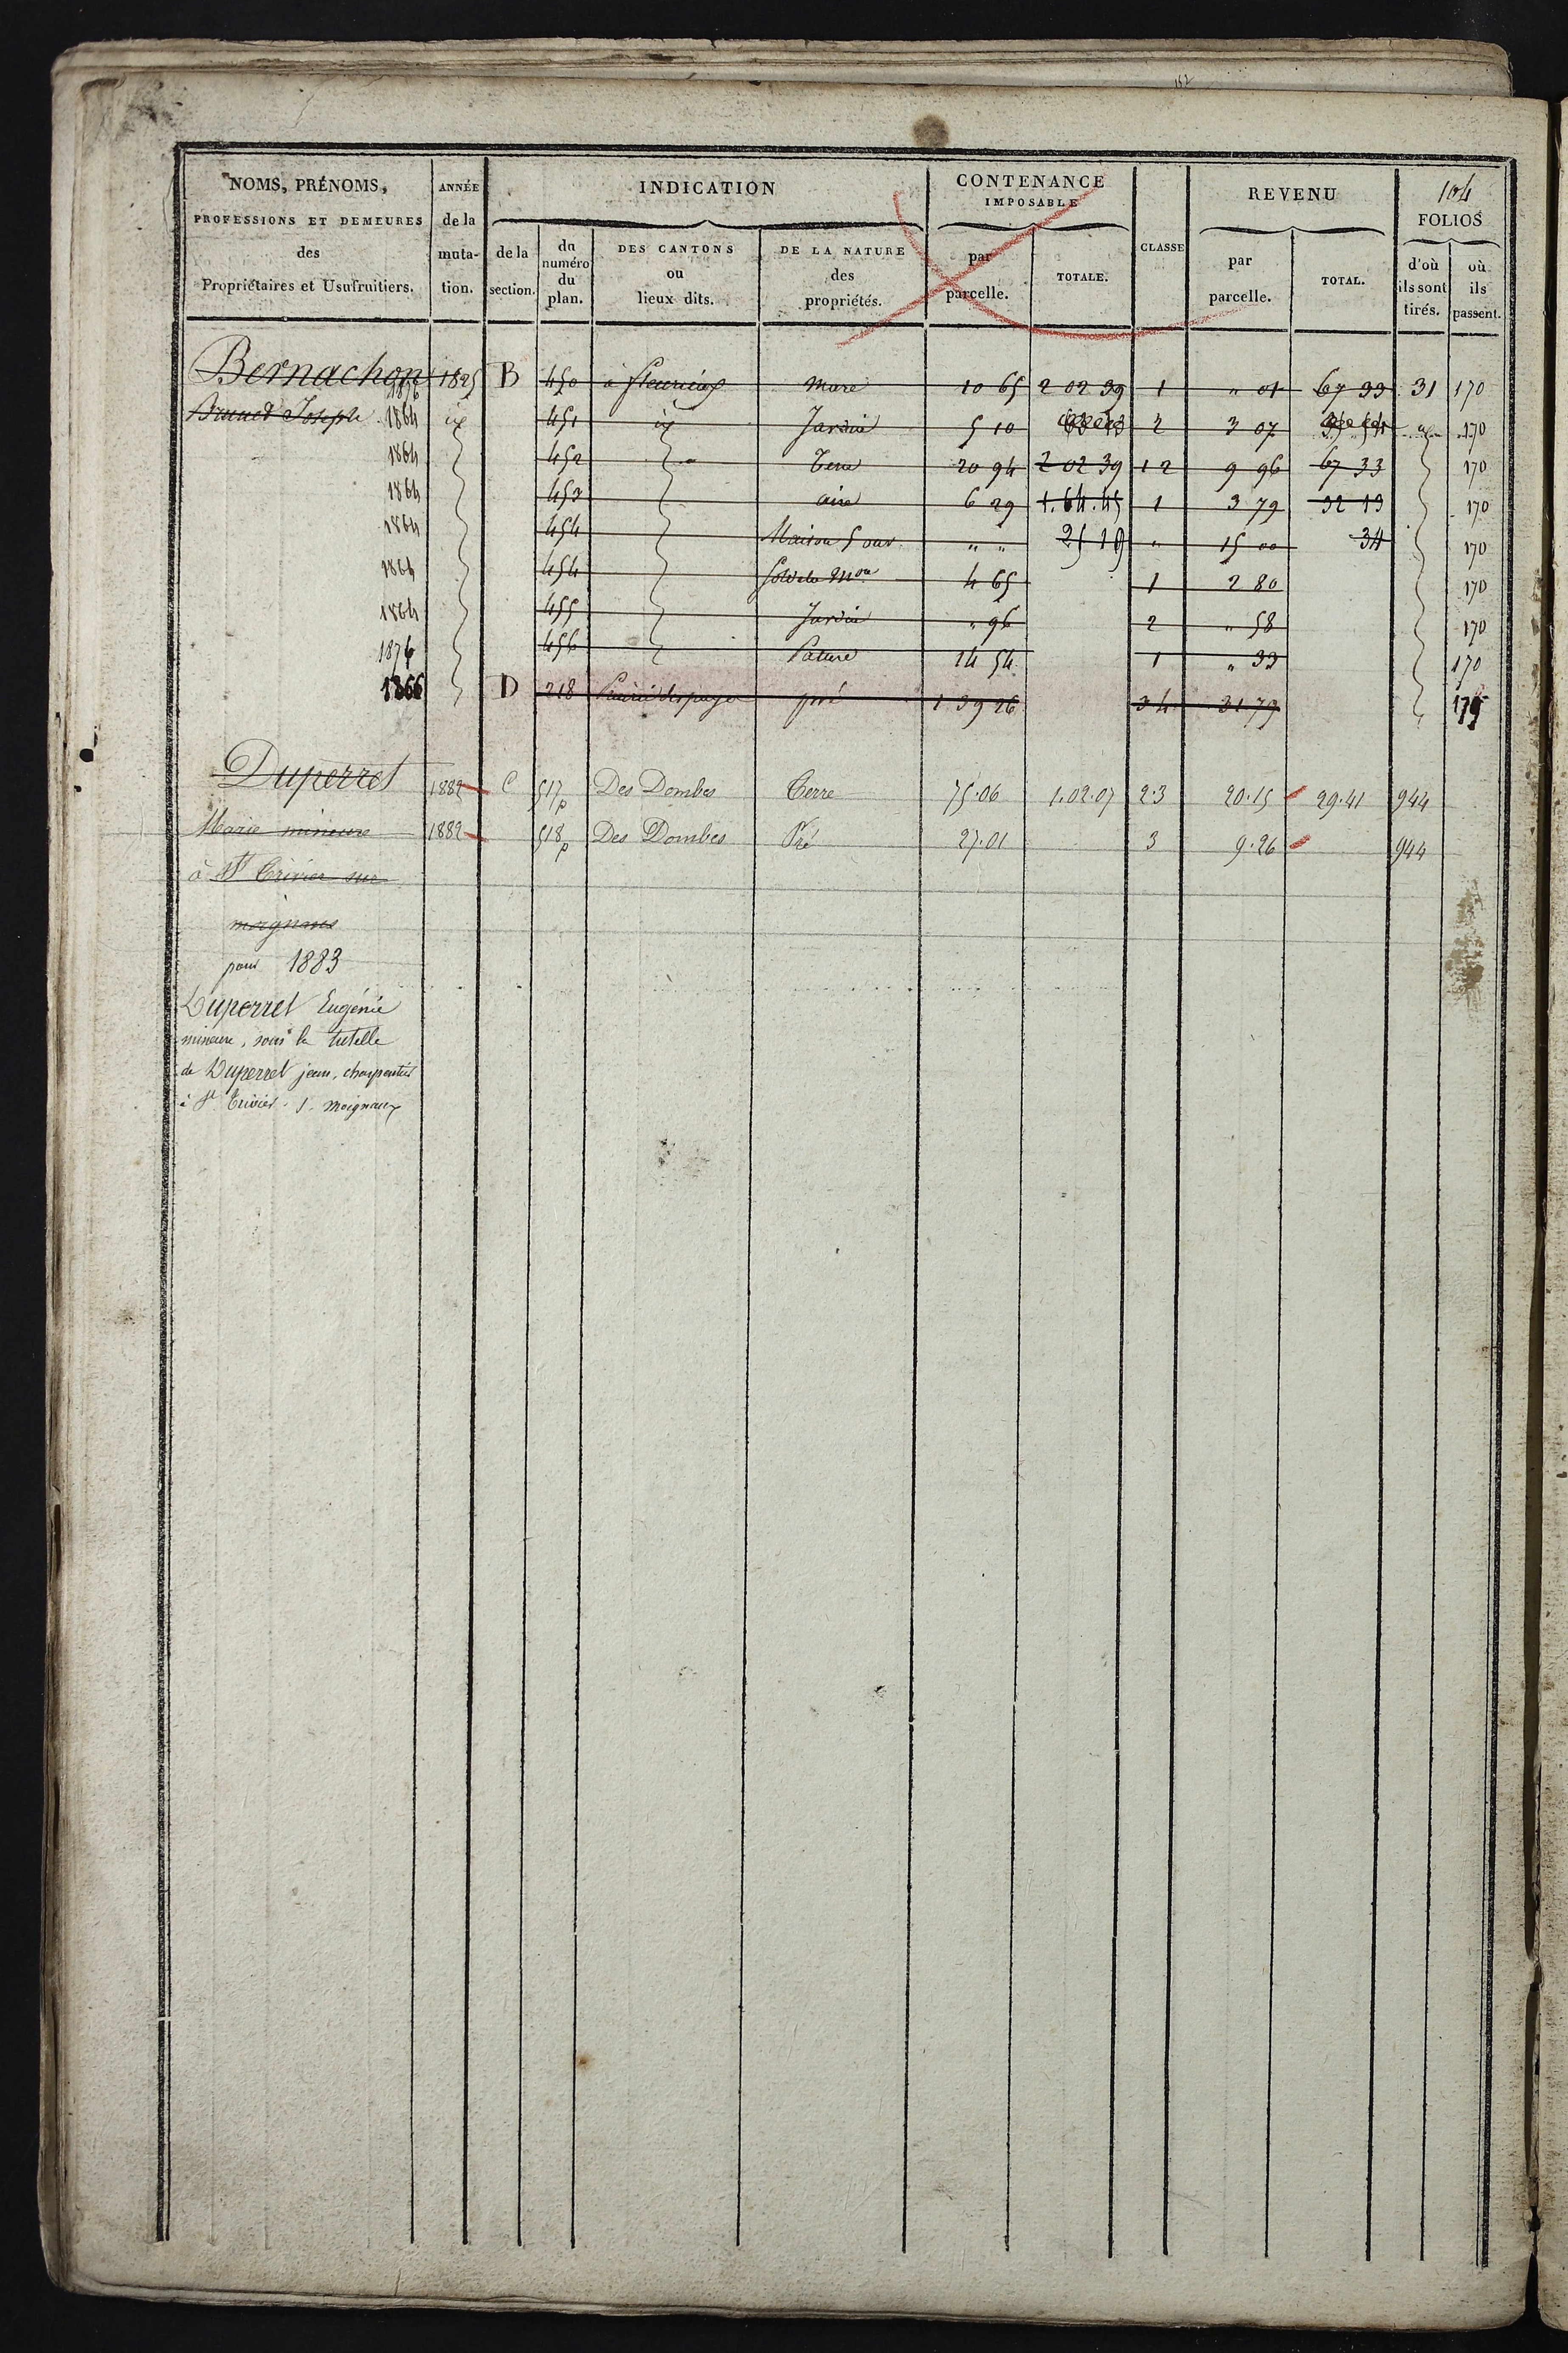 152
NOMS, PRÉNOMS, PROFESSIONS ET DEMEURES des Propriétaires et Usufruitiers.
ANNÉE de la muta-tion.
INDICATION
de la section.
du numéro du plan.
DES CANTONS ou lieux dits.
DE LA NATURE des propriétés.
CONTENANCE IMPOSABLE
par parcelle.
TOTALE.
CLASSE
REVENU
par parcelle.
TOTAL.
104
FOLIOS
d'où ils sont tirés.
où ils passent.
Bernachon 1876 1825 B 450 à fleurieux mare 10 65 2 02 39 1 " 01 67 33 31 170
Brunet Joseph 1864 451 Jardin 5 10 2 3 07 170
1864 452 Terre 20 94 2 02 39 1 2 9 96 67 33 170
1864 453 aire 6 29 1.64.45 1 3 79 32 13 170
1864 454 Maison 5 ouv. " " 25 19 " 15 00 34 170
1864 454 Sol de la Mon 4 65 1 2 80 170
1864 455 Jardin " 96 2 " 58 170
1876 456 Pature 14 54 1 " 33 170
1866 D 218 pré 1 39 26 3 4 31 79 179
Duperret 1882 C 517p Des Dombes Terre 75.06 1.02.07 2.3 20.15 29.41 944
Marie mineure 1882 518p Des Dombes Pré 27.01 3 9.26 944
à St Trivier sur
moignans
pour 1883
Duperret Eugénie
mineure, sous la tutelle
de Duperret jean, charpentier
à St Trivier s. moignans